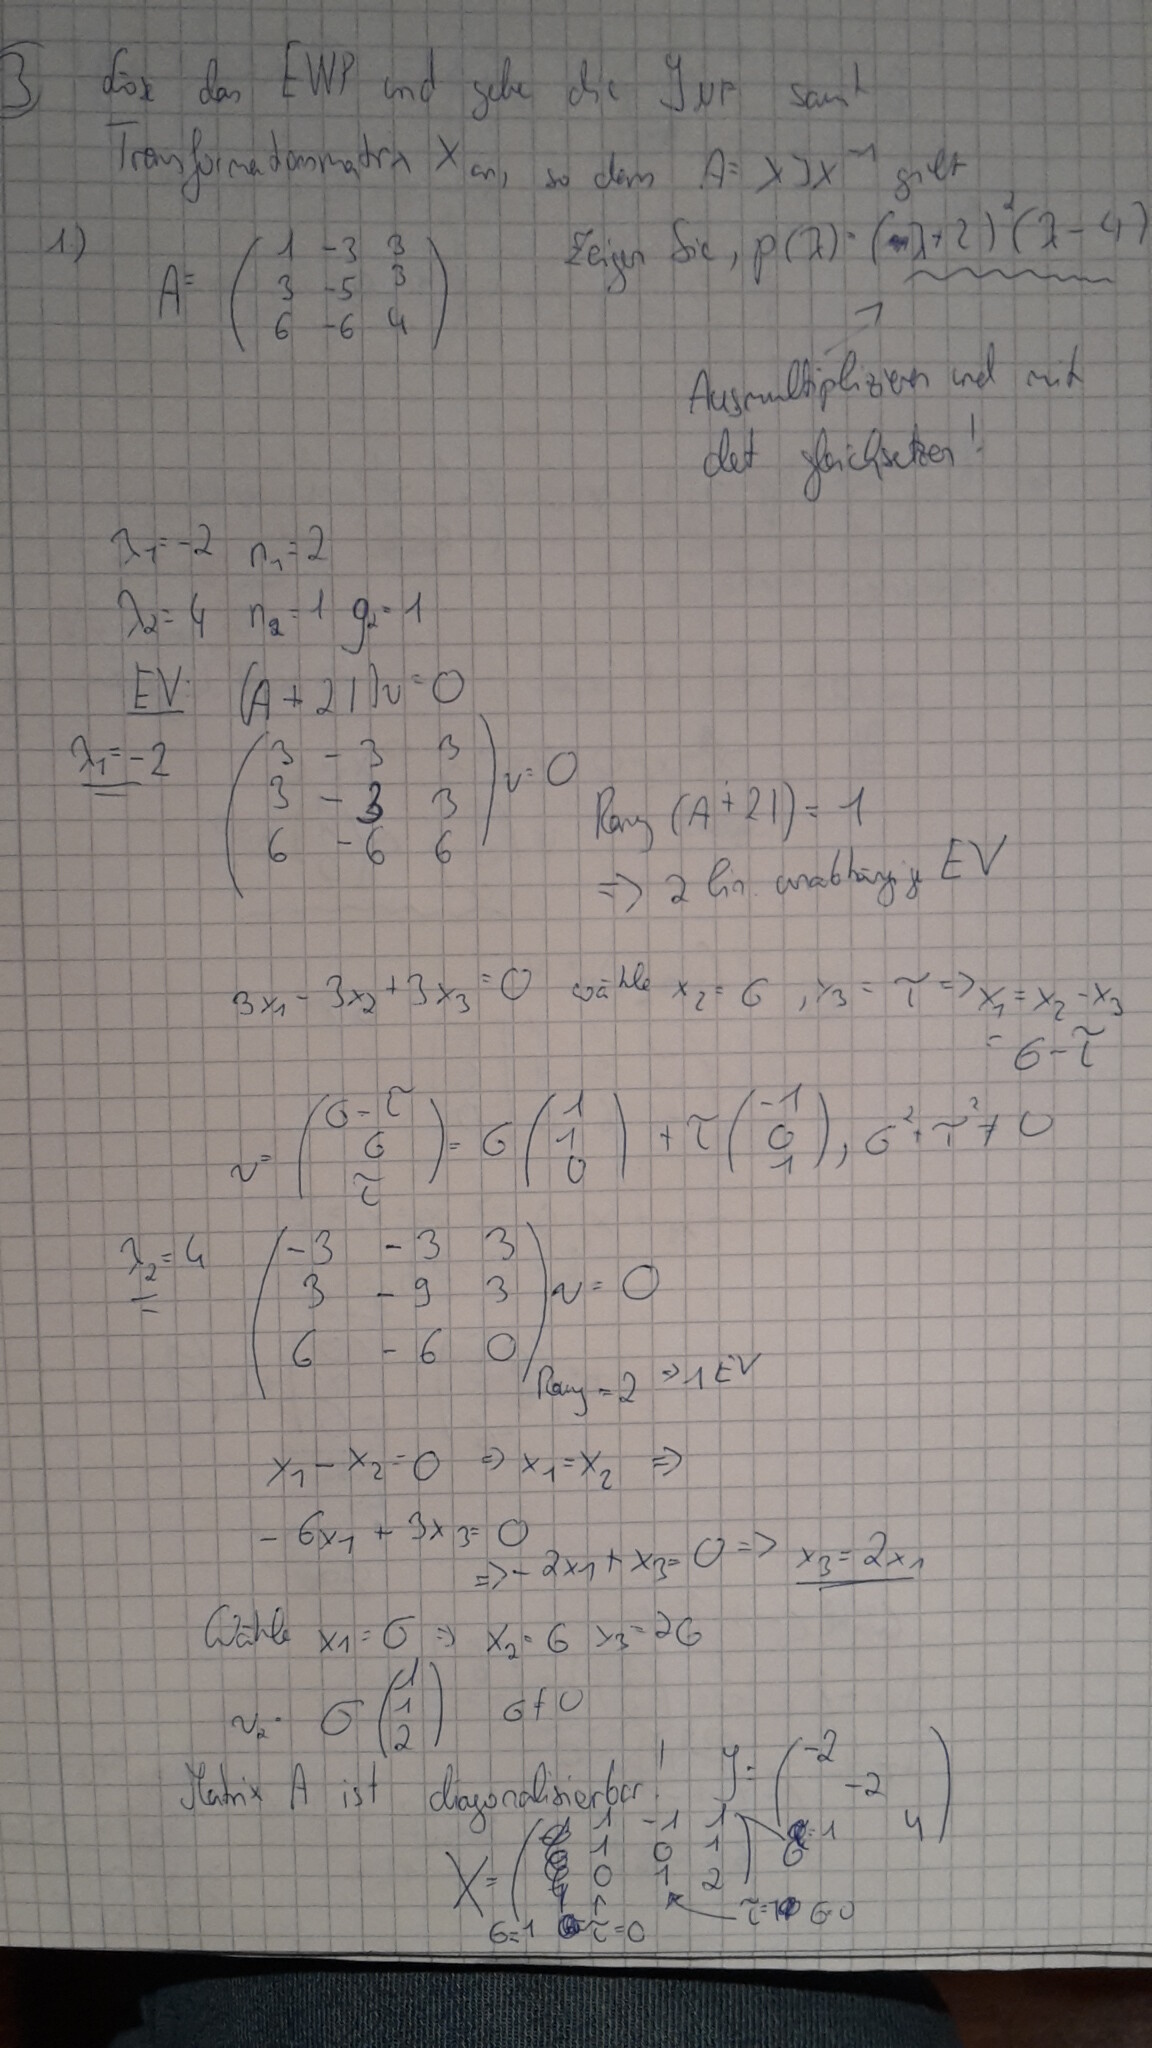 3) Löse das EWP und gebe die JNF samt
Transformationsmatrix X an, so dass A = XJX⁻¹ gilt
1) A = ( 1 -3 3
3 -5 3
6 -6 4 )
Zeigen Sie, p(λ) = (λ+2)²(λ-4)
Ausmultiplizieren und mit
det gleichsetzen!
λ₁ = -2 n₁ = 2
λ₂ = 4 n₂ = 1 g₂ = 1
EV: (A + 2I)v = 0
λ₁ = -2 ( 3 -3 3
3 -3 3
6 -6 6 ) v = 0
Rang (A+2I) = 1
=> 2 lin. unabhängige EV
3x₁ - 3x₂ + 3x₃ = 0 wähle x₂ = σ, x₃ = τ => x₁ = x₂ - x₃
= σ - τ
v = ( σ-τ
σ
τ ) = σ ( 1
1
0 ) + τ ( -1
0
1 ), σ² + τ² ≠ 0
λ₂ = 4 ( -3 -3 3
3 -9 3
6 -6 0 ) v = 0
Rang = 2 => 1 EV
x₁ - x₂ = 0 => x₁ = x₂ =>
-6x₁ + 3x₃ = 0
=> -2x₁ + x₃ = 0 => x₃ = 2x₁
Wähle x₁ = σ => x₂ = σ x₃ = 2σ
v₂ = σ ( 1
1
2 ) σ ≠ 0
Matrix A ist diagonalisierbar! J = ( -2
-2
4 )
X = ( 1 -1 1
1 0 1
0 1 2 ) σ = 1
σ=1 τ=0 τ=1 σ=0